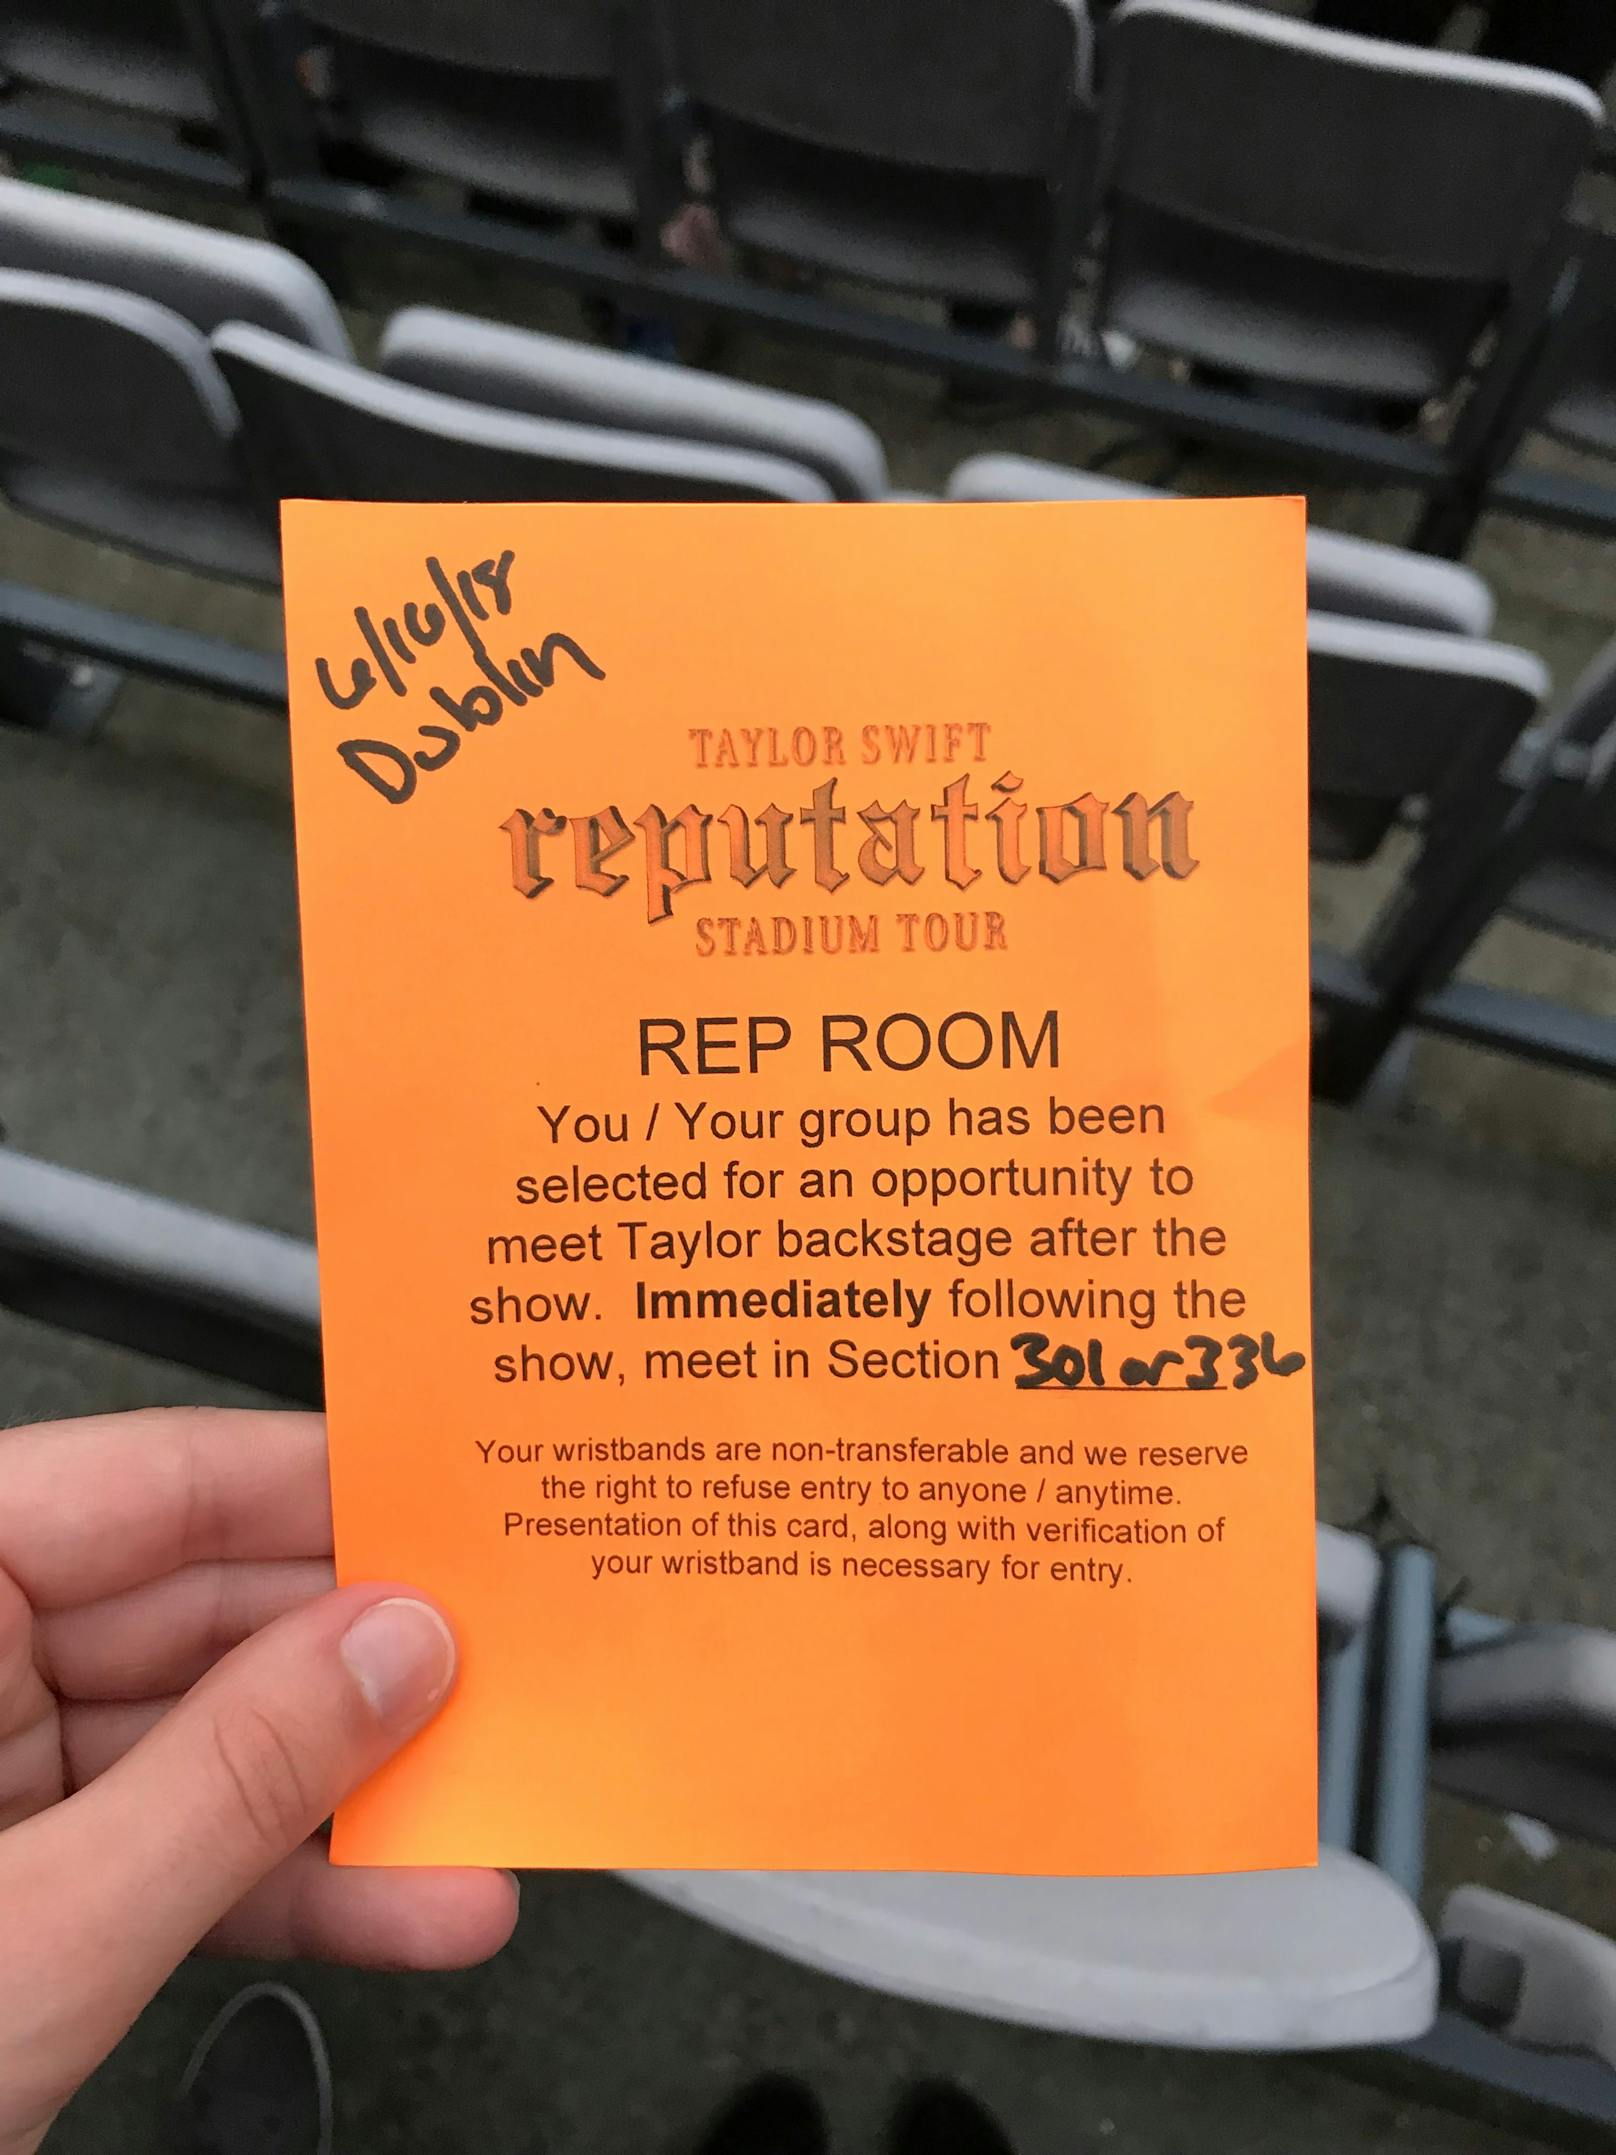 6/16/18
Dublin
TAYLOR SWIFT
reputation
STADIUM TOUR
REP ROOM
You / Your group has been
selected for an opportunity to
meet Taylor backstage after the
show. Immediately following the
show, meet in Section 301 or 336
Your wristbands are non-transferable and we reserve
the right to refuse entry to anyone / anytime.
Presentation of this card, along with verification of
your wristband is necessary for entry.